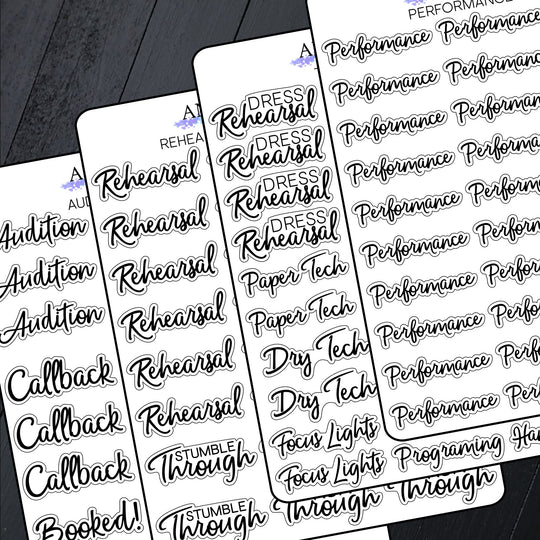 Audition
Audition
Audition
Callback
Callback
Callback
Booked!
Rehearsal
Rehearsal
Rehearsal
Rehearsal
Rehearsal
Rehearsal
STUMBLE
Through
STUMBLE
Through Through Through
DRESS
Rehearsal
DRESS
Rehearsal
DRESS
Rehearsal
DRESS
Rehearsal
Paper Tech
Paper Tech
Dry Tech
Dry Tech
Focus Lights
Focus Lights Programing
PERFORMANCE
Performance Performance
Performance
Performance
Performance
Performance
Performance
Performance
Performance
Performance
Performance